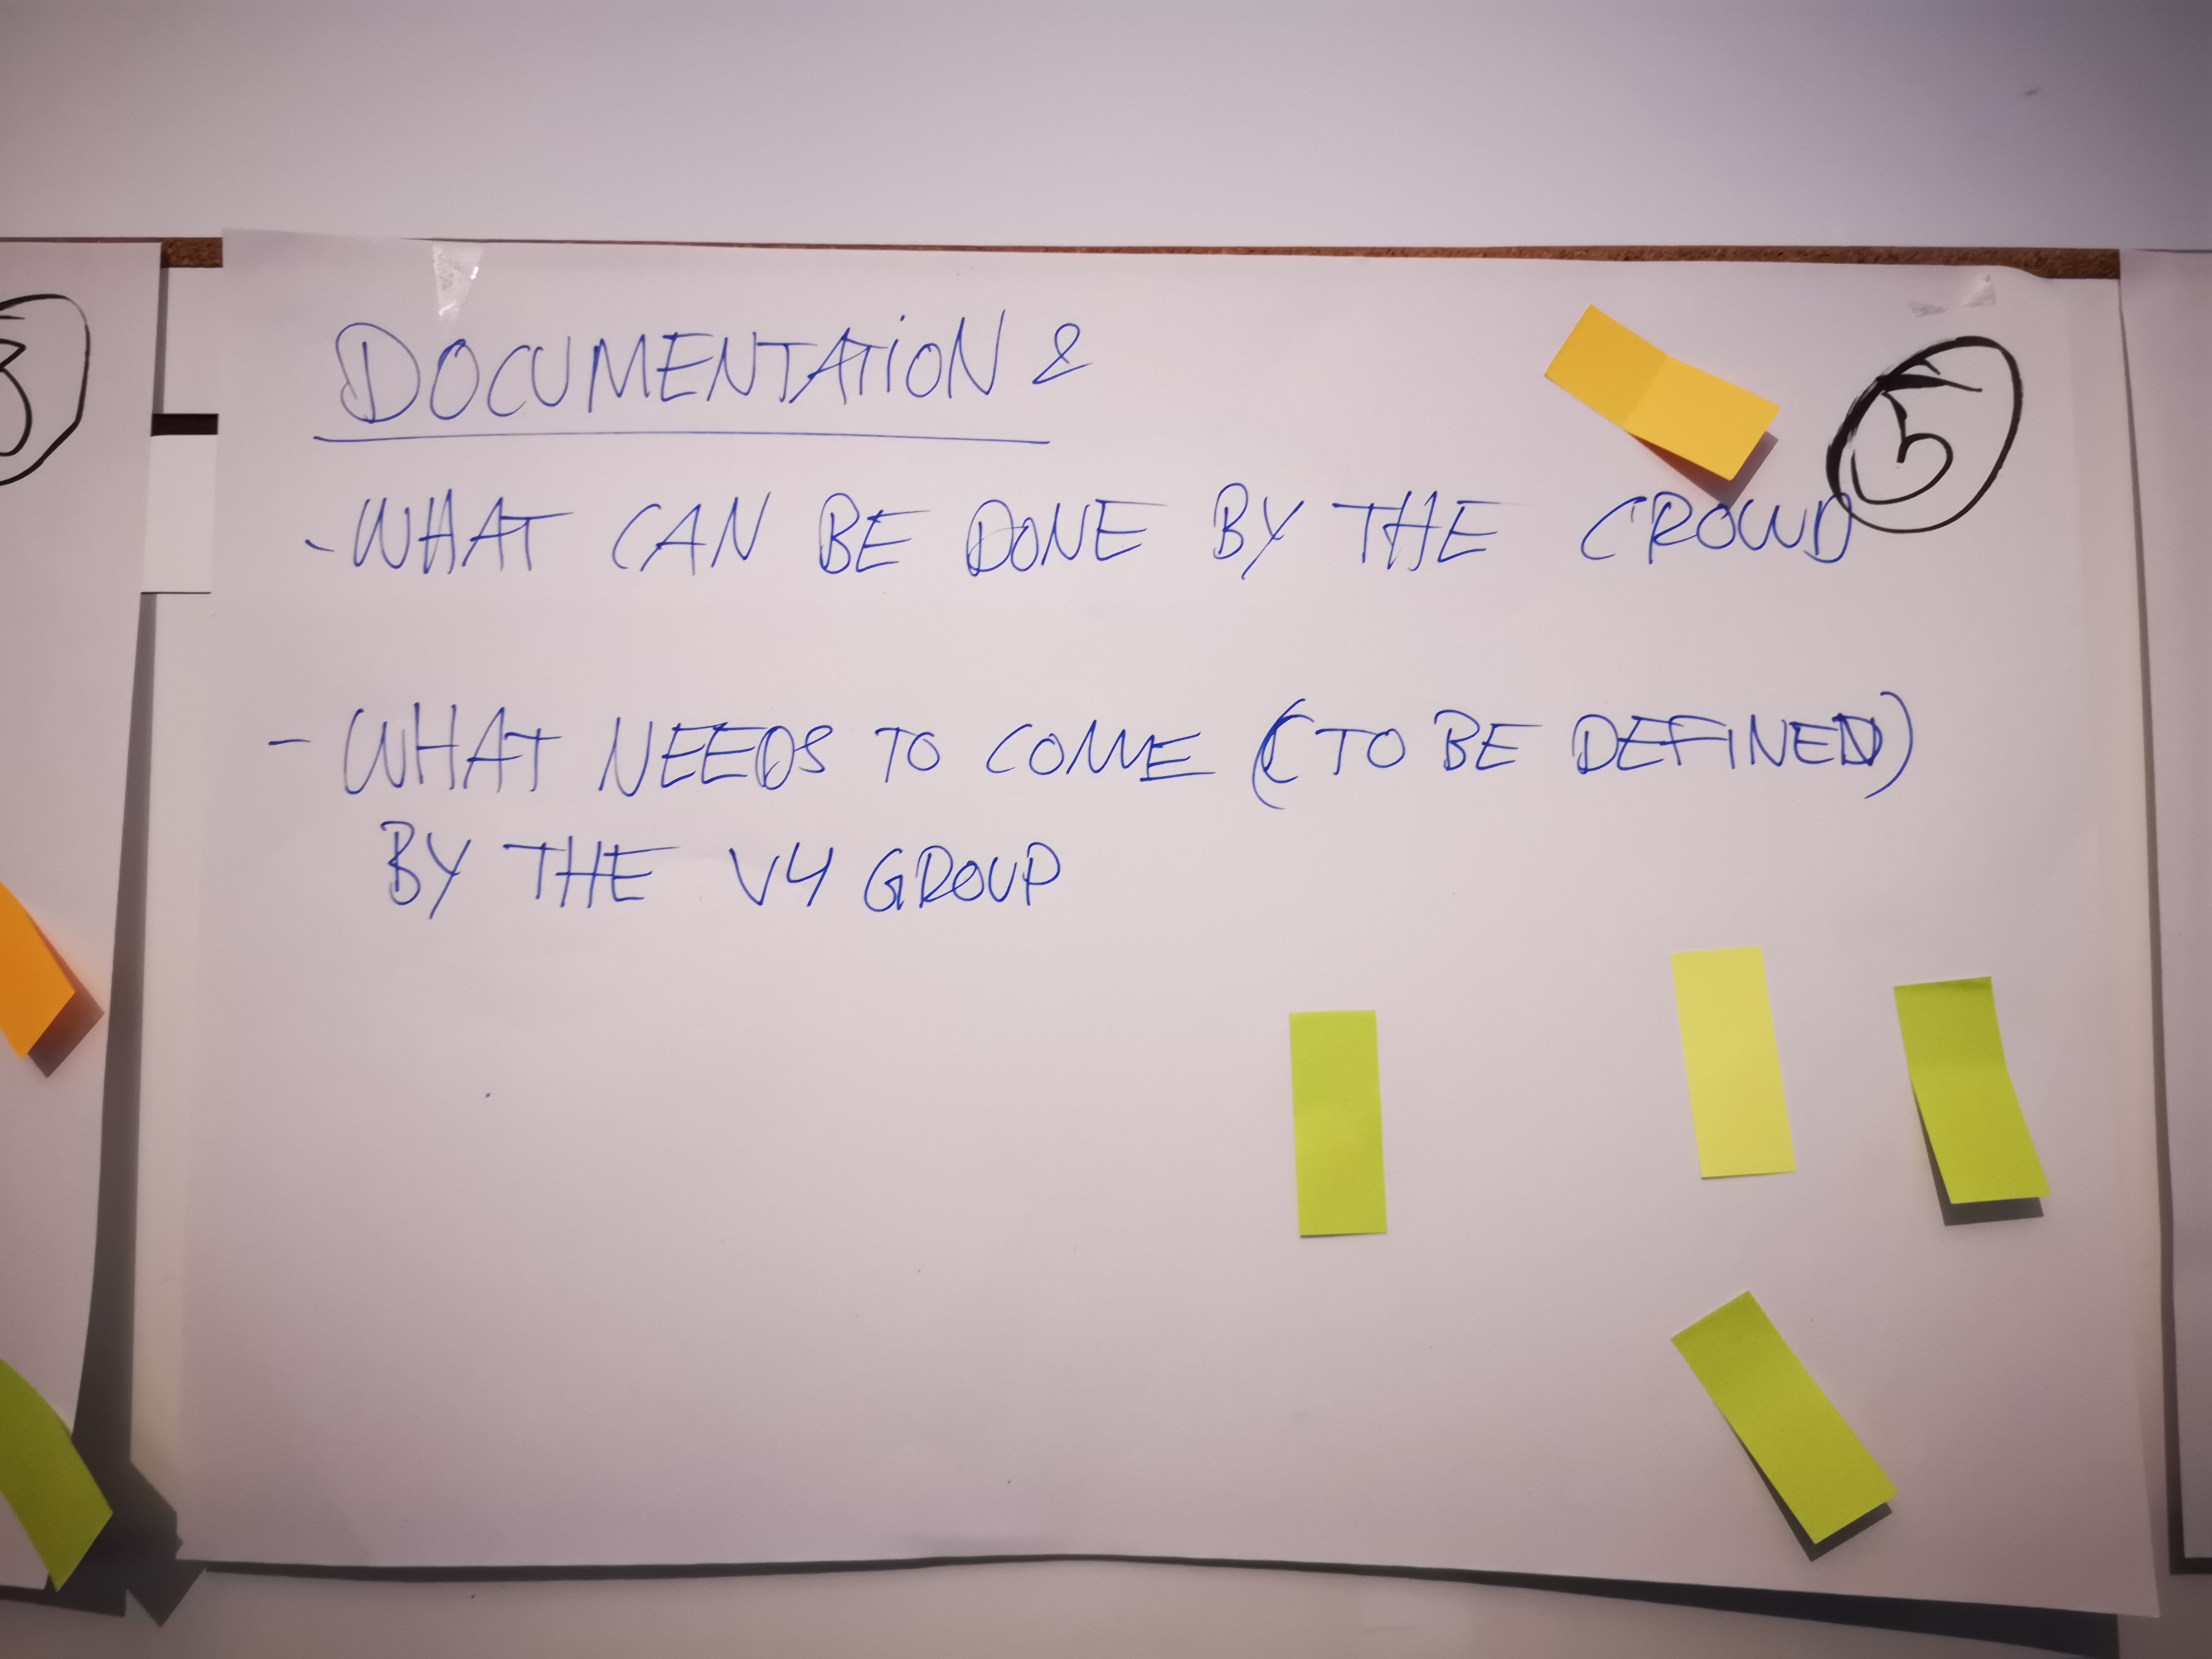 DOCUMENTATION &
5
- WHAT CAN BE DONE BY THE CROWD
- WHAT NEEDS TO COME (TO BE DEFINED)
BY THE V4 GROUP